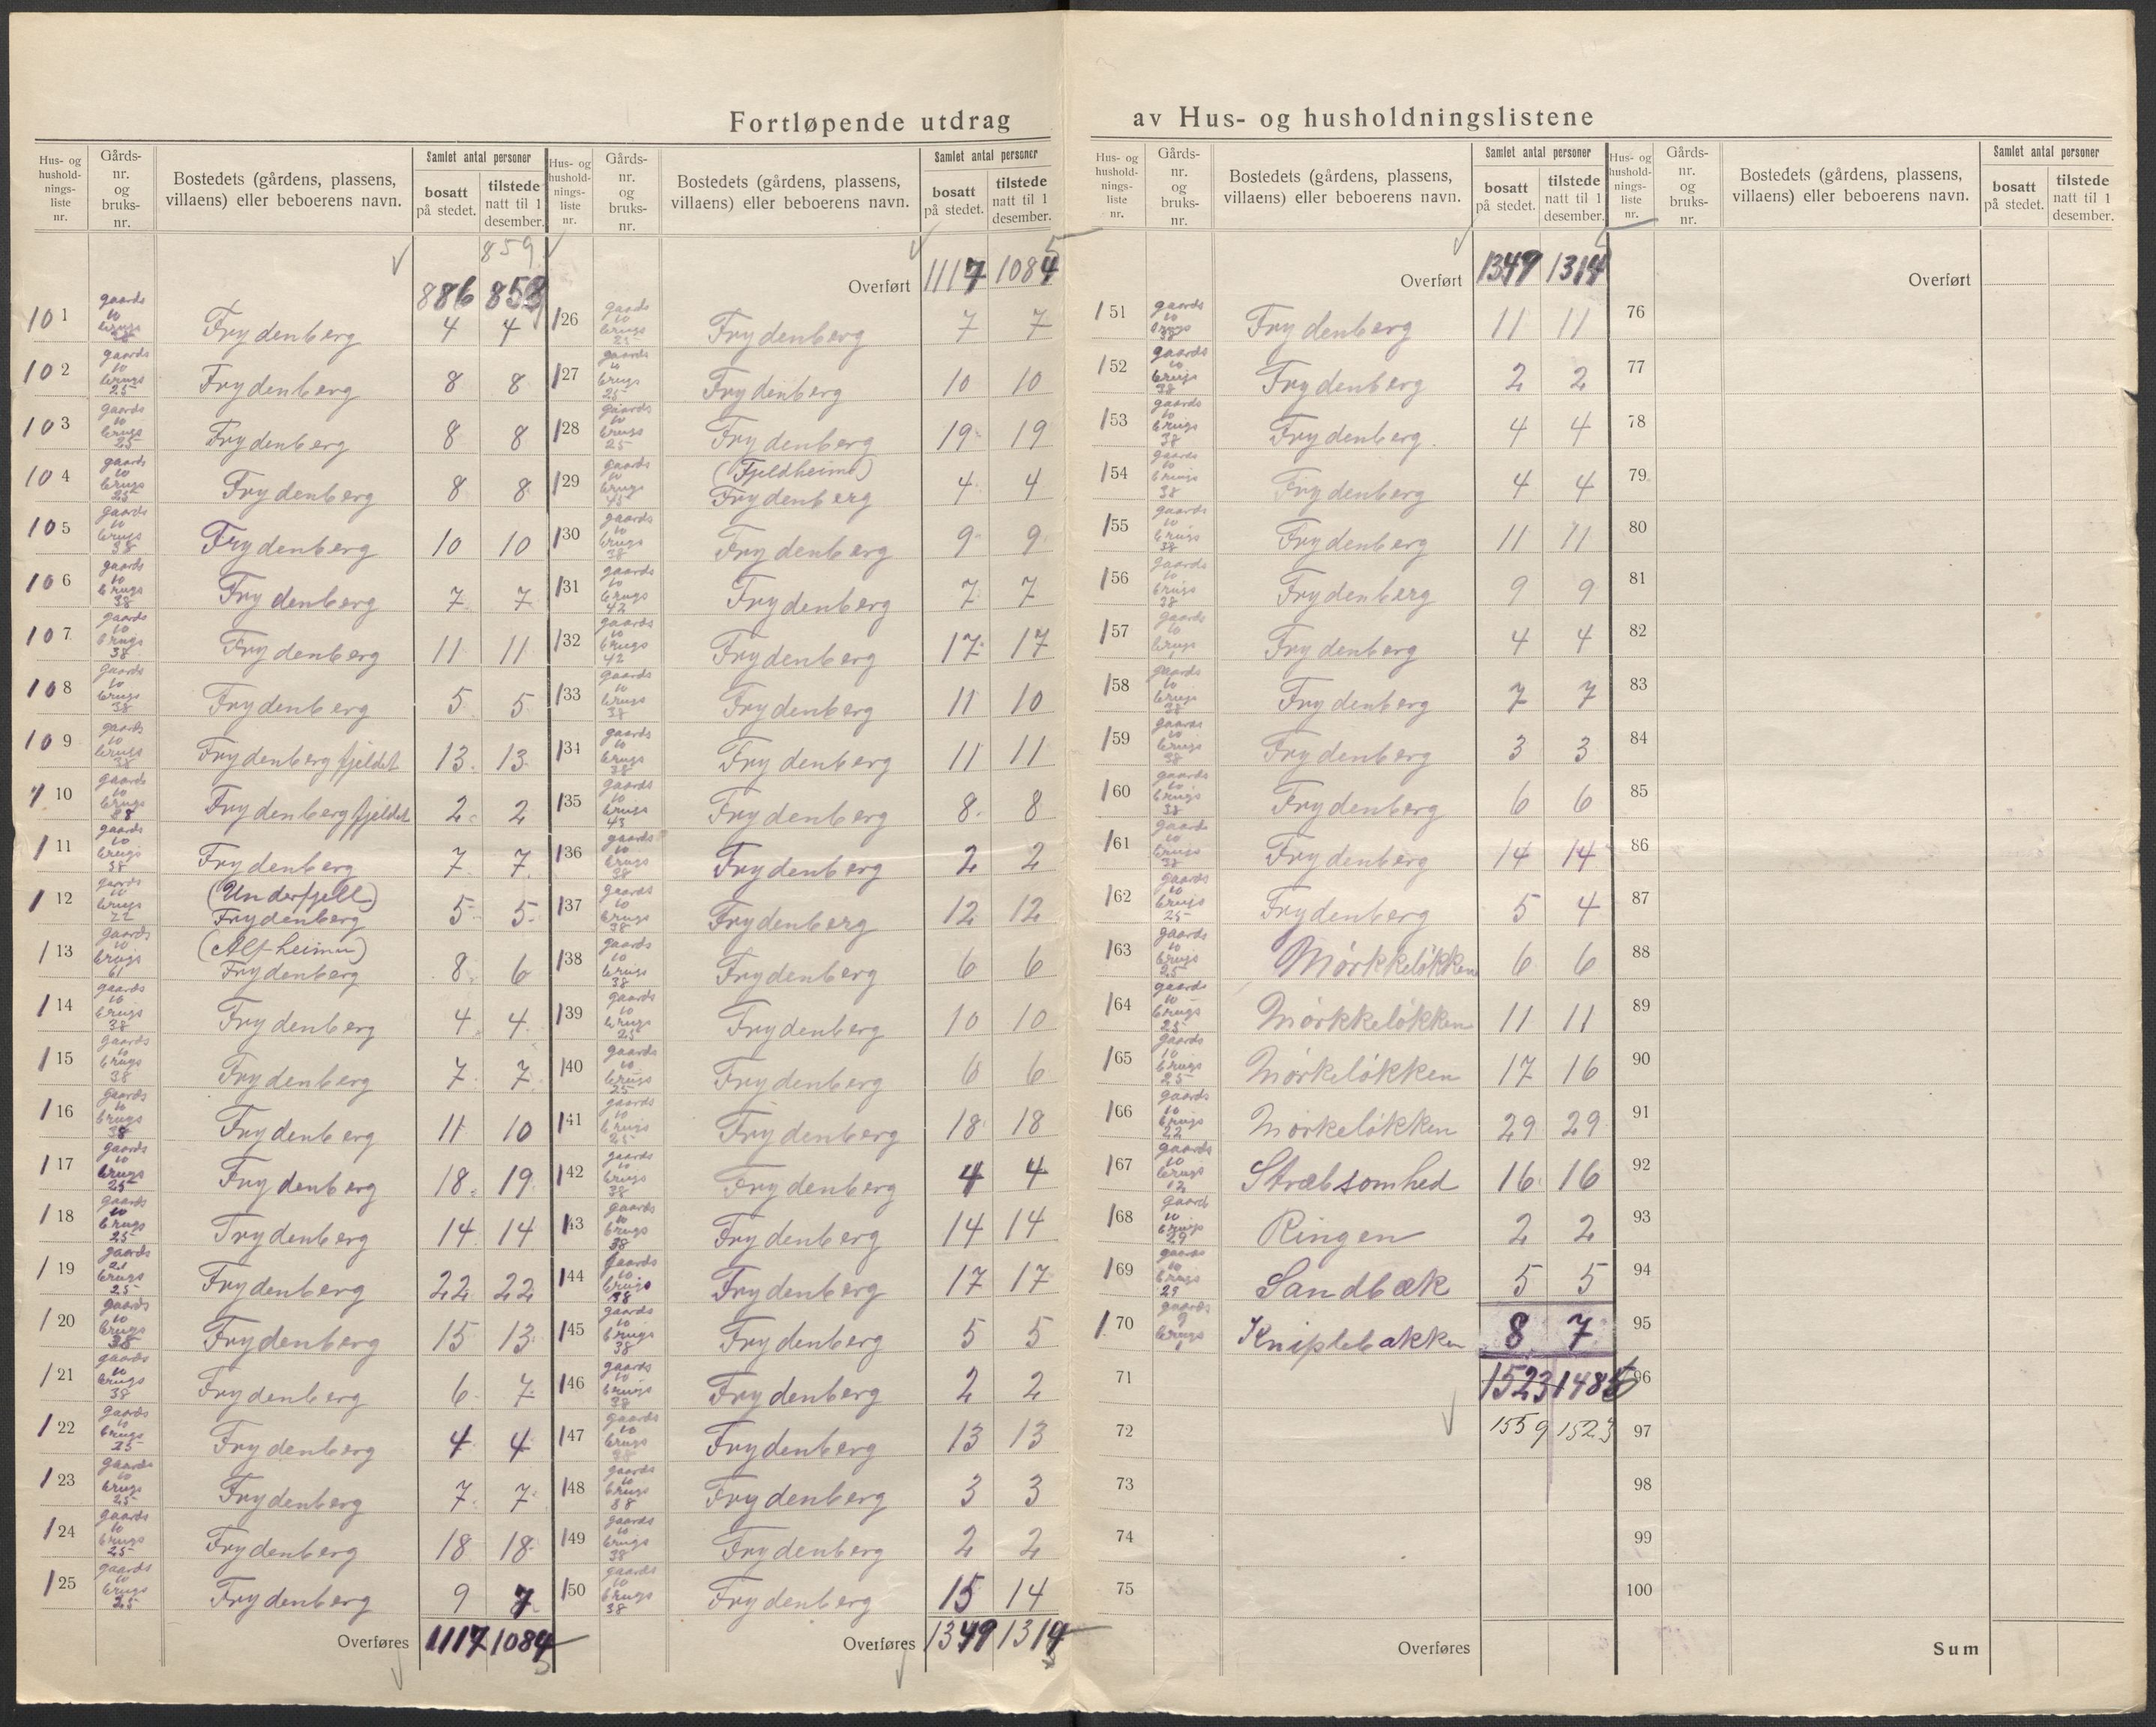 Fortløpende utdrag av Hus- og husholdningslistene
Hus- og husholdnings- liste nr. | Gårds- nr. og bruks- nr. | Bostedets (gårdens, plassens, villaens) eller beboerens navn. | Samlet antal personer | bosatt på stedet. | tilstede natt til 1 desember.
859
886 858
101 gaards 10 brugs 38 Frydenberg 4 4
102 gaards 10 brugs 25 Frydenberg 8 8
103 gaards 10 brugs 25 Frydenberg 8 8
104 gaards 10 brugs 25 Frydenberg 8 8
105 gaards 10 brugs 38 Frydenberg 10 10
106 gaards 10 brugs 38 Frydenberg 7 7
107 gaards 10 brugs 38 Frydenberg 11 11
108 gaards 10 brugs 38 Frydenberg 5 5
109 gaards 10 brugs 38 Frydenbergfjeldet 13 13
110 gaards 10 brugs 88 Frydenbergfjeldet 2 2
111 gaards 10 brugs 38 Frydenberg 7 7
112 gaards 10 brugs 22 (Underfjell) Frydenberg 5 5
113 gaards 10 brugs 61 (Alfheimen) Frydenberg 8 6
114 gaards 10 brugs 38 Frydenberg 4 4
115 gaards 10 brugs 38 Frydenberg 7 7
116 gaards 10 brugs 38 Frydenberg 11 10
117 gaards 10 brugs 25 Frydenberg 18 19
118 gaards 10 brugs 25 Frydenberg 14 14
119 gaards brugs 25 Frydenberg 22 22
120 gaards 10 brugs 38 Frydenberg 15 13
121 gaards 10 brugs 38 Frydenberg 6 7
122 gaards 10 brugs 25 Frydenberg 4 4
123 gaards 10 brugs 25 Frydenberg 7 7
124 gaards 10 brugs 25 Frydenberg 18 18
125 gaards 10 brugs 25 Frydenberg 9 7
Overføres 1117 1084 5
Hus- og husholdnings- liste nr. | Gårds- nr. og bruks- nr. | Bostedets (gårdens, plassens, villaens) eller beboerens navn. | Samlet antal personer | bosatt på stedet. | tilstede natt til 1 desember.
Overført 1117 1084 5
126 gaards 10 brugs 25 Frydenberg 7 7
127 gaards 10 brugs 25 Frydenberg 10 10
128 gaards 10 brugs 25 Frydenberg 19 19
129 gaards 10 brugs 45 (Fjeldheim) Frydenberg 4 4
130 gaards 10 brugs 38 Frydenberg 9 9
131 gaards 10 brugs 42 Frydenberg 7 7
132 gaards 10 brugs 42 Frydenberg 17 17
133 gaards 10 brugs 38 Frydenberg 11 10
134 gaards 10 brugs 38 Frydenberg 11 11
135 gaards 10 brugs 43 Frydenberg 8 8
136 gaards 10 brugs 38 Frydenberg 2 2
137 gaards 10 brugs 38 Frydenberg 12 12
138 gaards 10 brugs 38 Frydenberg 6 6
139 gaards 10 brugs 25 Frydenberg 10 10
140 gaards 10 brugs 25 Frydenberg 6 6
141 gaards 10 brugs 25 Frydenberg 18 18
142 gaards 10 brugs 38 Frydenberg 4 4
143 gaards 10 brugs 38 Frydenberg 14 14
144 gaards 10 brugs 38 Frydenberg 17 17
145 gaards 10 brugs 38 Frydenberg 5 5
146 gaards 10 brugs 38 Frydenberg 2 2
147 gaards 10 brugs 38 Frydenberg 13 13
148 gaards 10 brugs 38 Frydenberg 3 3
149 gaards 10 brugs 38 Frydenberg 2 2
150 gaards 10 brugs 38 Frydenberg 15 14
Overføres 1349 1314 5
Hus- og husholdnings- liste nr. | Gårds- nr. og bruks- nr. | Bostedets (gårdens, plassens, villaens) eller beboerens navn. | Samlet antal personer | bosatt på stedet. | tilstede natt til 1 desember.
Overført 1349 1314 5
151 gaards 10 brugs 38 Frydenberg 11 11
152 gaards 10 brugs 38 Frydenberg 2 2
153 gaards 10 brugs 38 Frydenberg. 4 4
154 gaards 10 brugs 38 Frydenberg 4 4
155 gaards 10 brugs 38 Frydenberg 11 11
156 gaards 10 brugs 38 Frydenberg 9 9
157 gaards 10 brugs Frydenberg 4 4
158 gaards 10 brugs 38 Frydenberg 7 7
159 gaards 10 brugs 38 Frydenberg 3 3
160 gaards 10 brugs 38 Frydenberg 6 6
161 gaards 10 brugs 38 Frydenberg 14 14
162 gaards 10 brugs 25 Frydenberg 5 4
163 gaards 10 brugs 25 Mørkkeløkken 6 6
164 gaards 10 brugs 25 Mørkkeløkken 11 11
165 gaards 10 brugs 25 Mørkeløkken 17 16
166 gaards 10 brugs 22 Mørkeløkken 29 29
167 gaards 10 brugs 12 Stræbsomhed 16 16
168 gaards 10 brugs 29 Ringen 2 2
169 gaards 10 brugs 29 Sandbæk 5 5
170 gaards 9 brugs 1 Kniplebakken 8 7
71 1523 148
72 1559 1523
73
74
75
Overføres
Hus- og husholdnings- liste nr. | Gårds- nr. og bruks- nr. | Bostedets (gårdens, plassens, villaens) eller beboerens navn. | Samlet antal personer | bosatt på stedet. | tilstede natt til 1 desember.
Overført
76
77
78
79
80
81
82
83
84
85
86
87
88
89
90
91
92
93
94
95
96
97
98
99
100
Sum